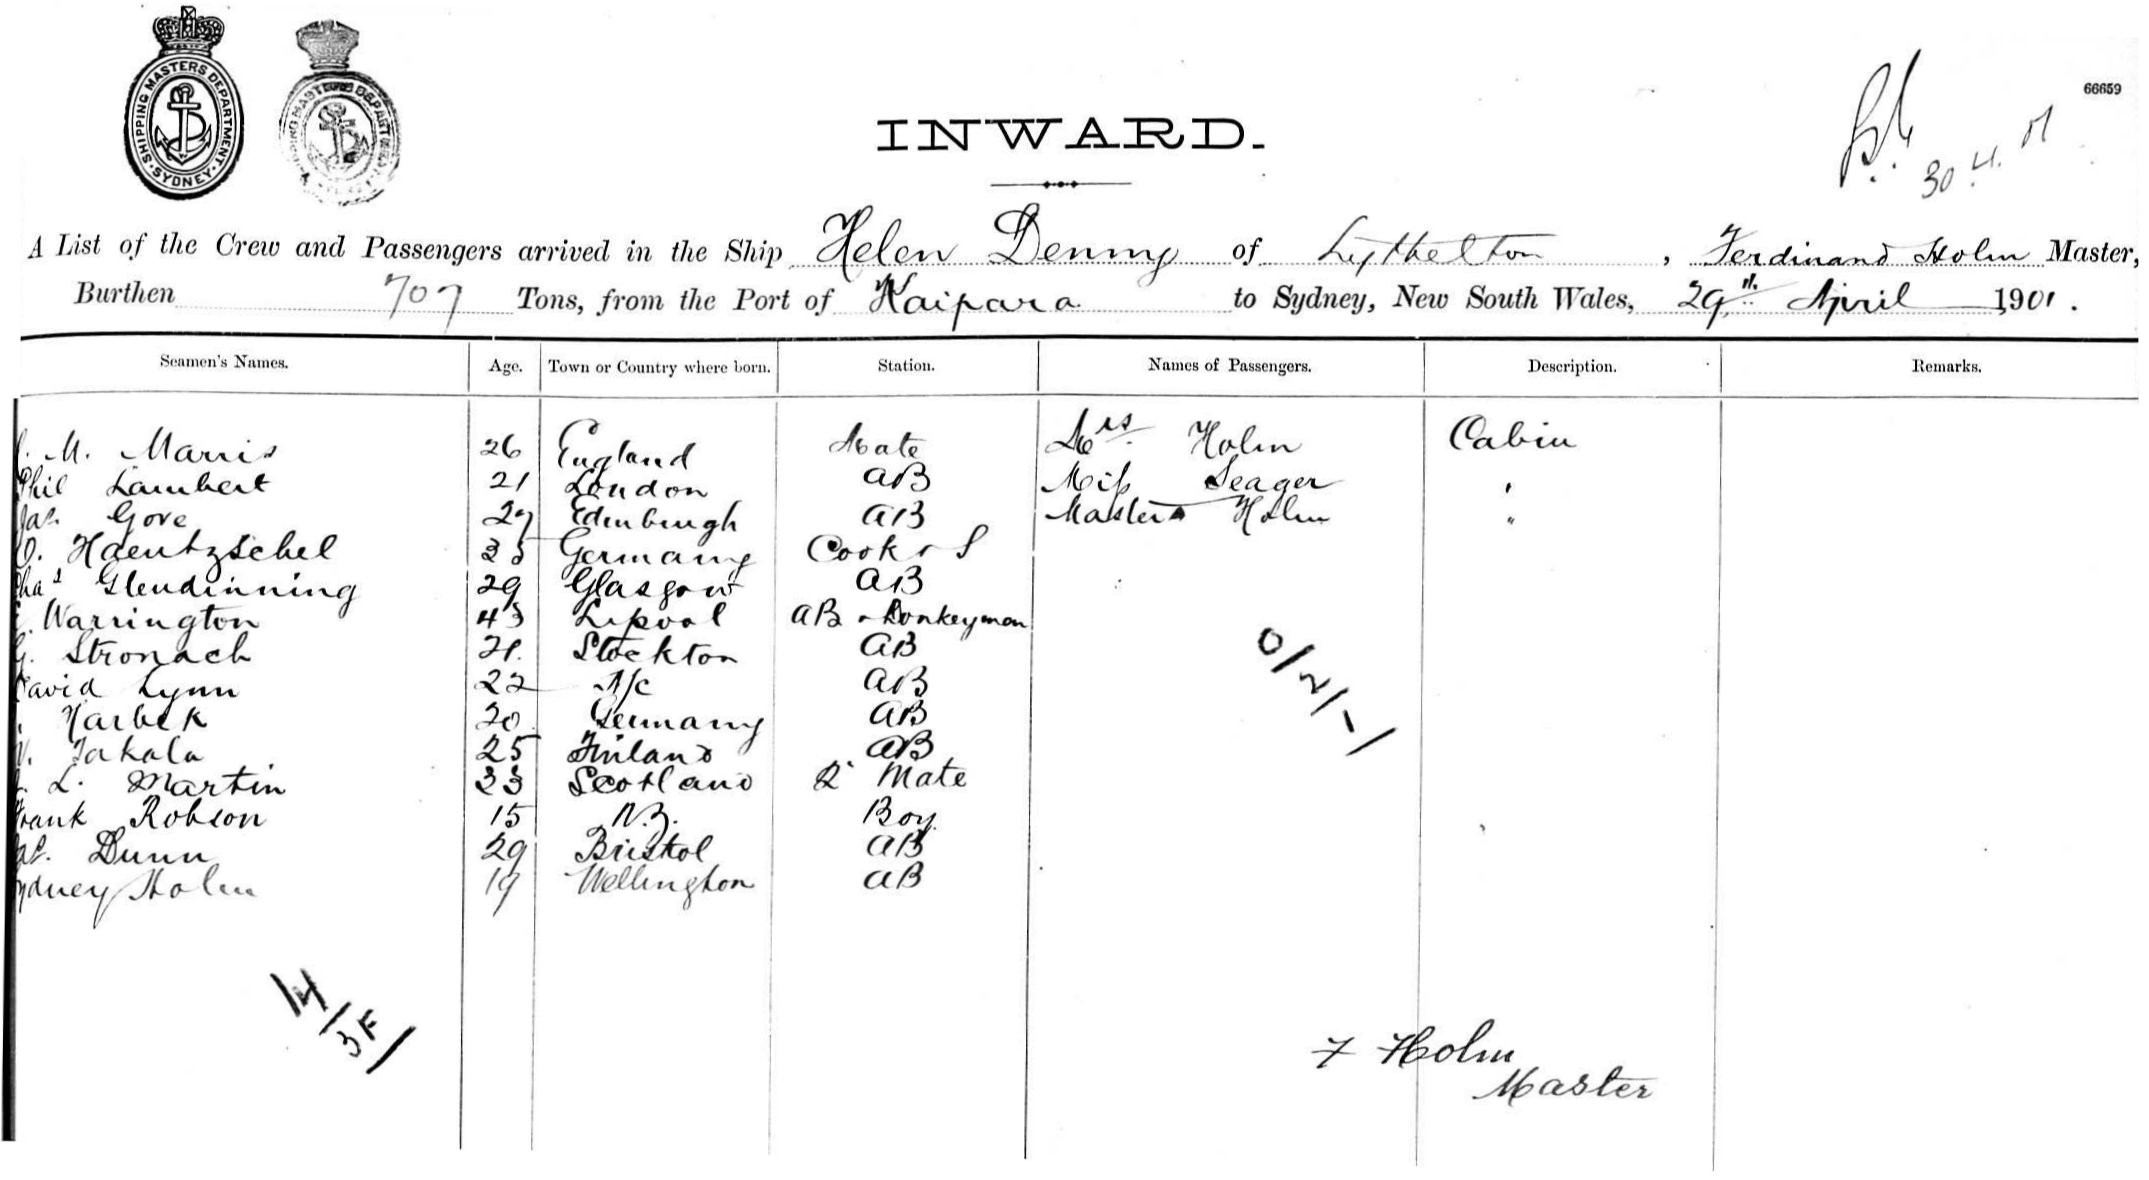 SHIPPING MASTERS DEPARTMENT
SYDNEY
66659
INWARD.
30.4.01
A List of the Crew and Passengers arrived in the Ship Helen Denny of Lyttelton, Ferdinand Holm Master,
Burthen 707 Tons, from the Port of Kaipara to Sydney, New South Wales, 29th April 1901.
Seamen's Names. Age. Town or Country where born. Station. Names of Passengers. Description. Remarks.
M. Marris 26 England Mate Mrs. Holm Cabin
Phil Lambert 21 London AB Miss Seager "
Jas. Gore 27 Edinburgh AB Master Holm "
O. Haentzschel 35 Germany Cook & S
Chas Glendinning 29 Glasgow AB
Warrington 43 Lipool AB & Donkeyman
G. Stronach 21. Stockton AB
David Lynn 22 N/c AB
Harbek 20 Germany AB
Takala 25 Finland AB
L. Martin 33 Scotland 2 Mate
Frank Robson 15 N.Z. Boy
Dunn 29 Bristol AB
Sydney Holm 19 Wellington AB
0/2/-/
14/3F/
F Holm
Master